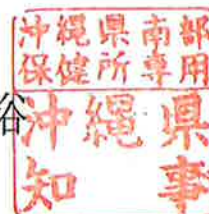 沖縄県南部
保健所専用
谷
沖縄県
知事